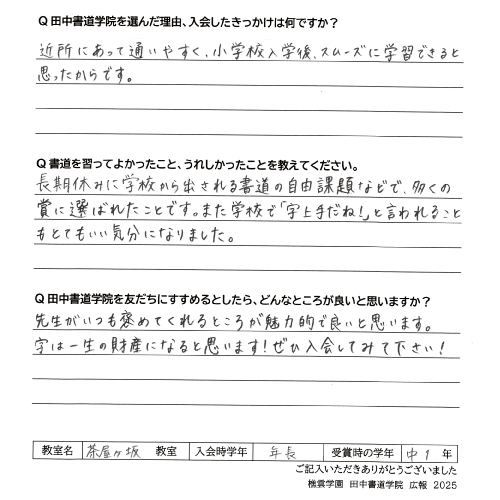 Q 田中書道学院を選んだ理由、入会したきっかけは何ですか？
近所にあって通いやすく、小学校入学後、スムーズに学習できると
思ったからです。
Q 書道を習ってよかったこと、うれしかったことを教えてください。
長期休みに学校から出される書道の自由課題などで、多くの
賞に選ばれたことです。また学校で「字上手だね!」と言われること
もとてもいい気分になりました。
Q 田中書道学院を友だちにすすめるとしたら、どんなところが良いと思いますか？
先生がいつも褒めてくれるところが魅力的で良いと思います。
字は一生の財産になると思います!ぜひ入会してみて下さい!
教室名 茶屋ヶ坂 教室 入会時学年 年長 受賞時の学年 中1 年
ご記入いただきありがとうございました
桃雲学園 田中書道学院 広報 2025